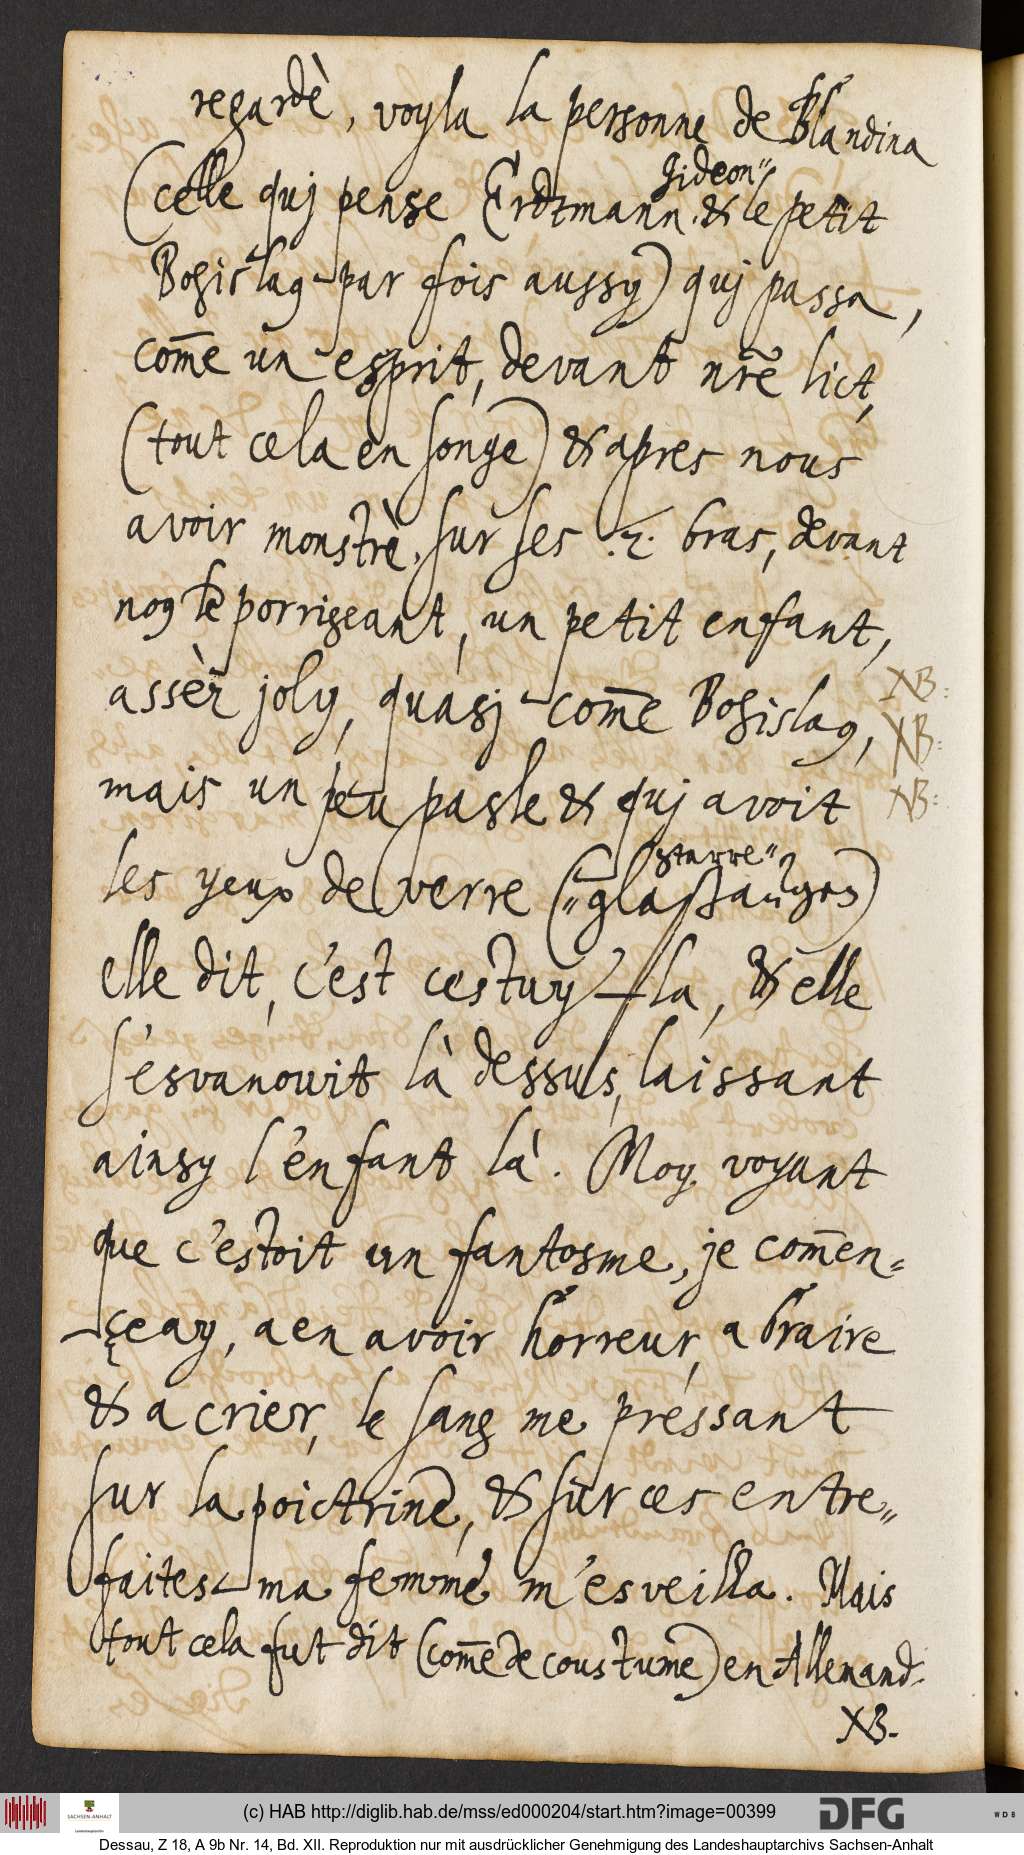 regardè, voyla la personne de Blandina
(celle quj pense Erdtmann Gideon" & le petit
Bogislaq par fois aussy) quj passa,
com̄e un esprit, devant nr̄e lict,
(tout cela en songe) & apres nous
avoir monstrè sur ses .2. bras, devant
noq le porrigeant, un petit enfant,
assèz joly, quasj com̄e Bogislaq,
XB:
XB:
XB:
mais un peu pasle & quj avoit
les yeux de verre ("starre" glaßaugen)
elle dit, c'est cestuy-la, & elle
s'esvanouit là dessus, laissant
ainsy l'enfant là. Moy voyant
que c'estoit un fantosme, je com̄en=
çeay, a en avoir horreur, a braire
& a crier, le sang me pressant
sur la poictrine, & sur ces entre=
faites ma femme m'esveilla. Mais
tout cela fut dit (com̄e de coustume) en Allemand.
XB.
(c) HAB http://diglib.hab.de/mss/ed000204/start.htm?image=00399
SACHSEN-ANHALT
DFG
W D B
Dessau, Z 18, A 9b Nr. 14, Bd. XII. Reproduktion nur mit ausdrücklicher Genehmigung des Landeshauptarchivs Sachsen-Anhalt